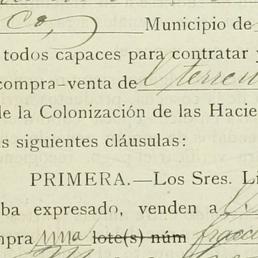 co, Municipio de
todos capaces para contratar y
compra-venta de
de la Colonización de las Hacie
s siguientes cláusulas:
PRIMERA.—Los Sres. Li
ba expresado, venden a
pra una lote(s) núm